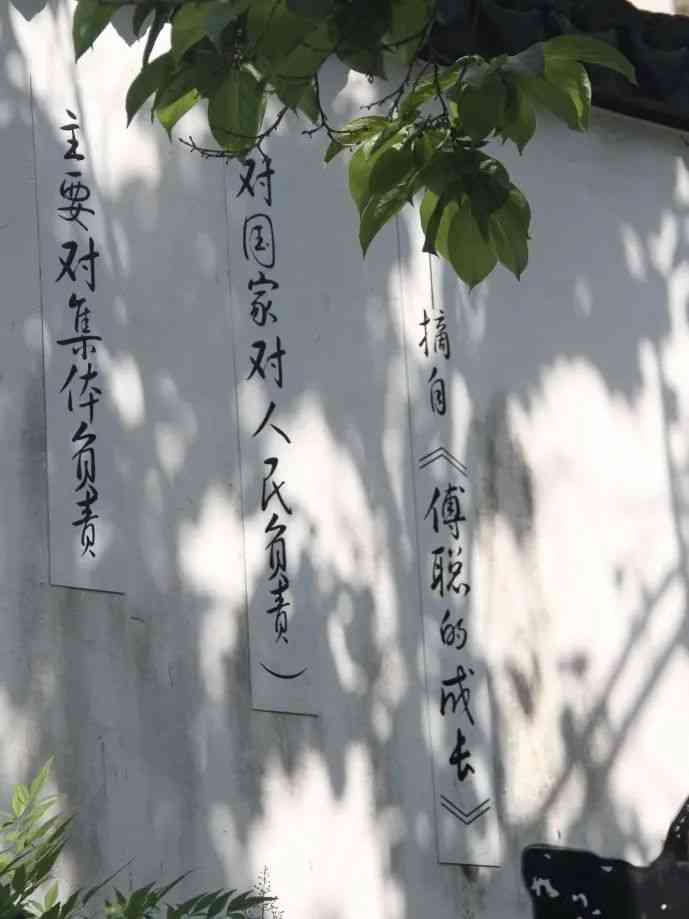 主要对集体负责
对国家对人民负责）
摘自《傅聪的成长》